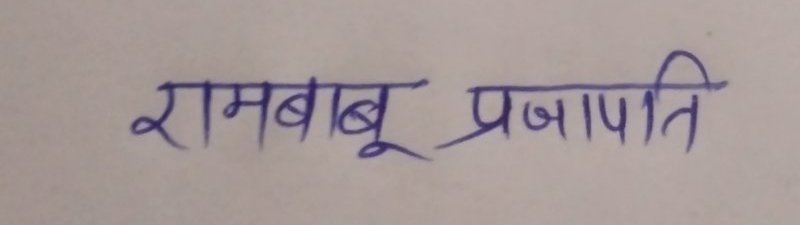 रामबाबू प्रजापति